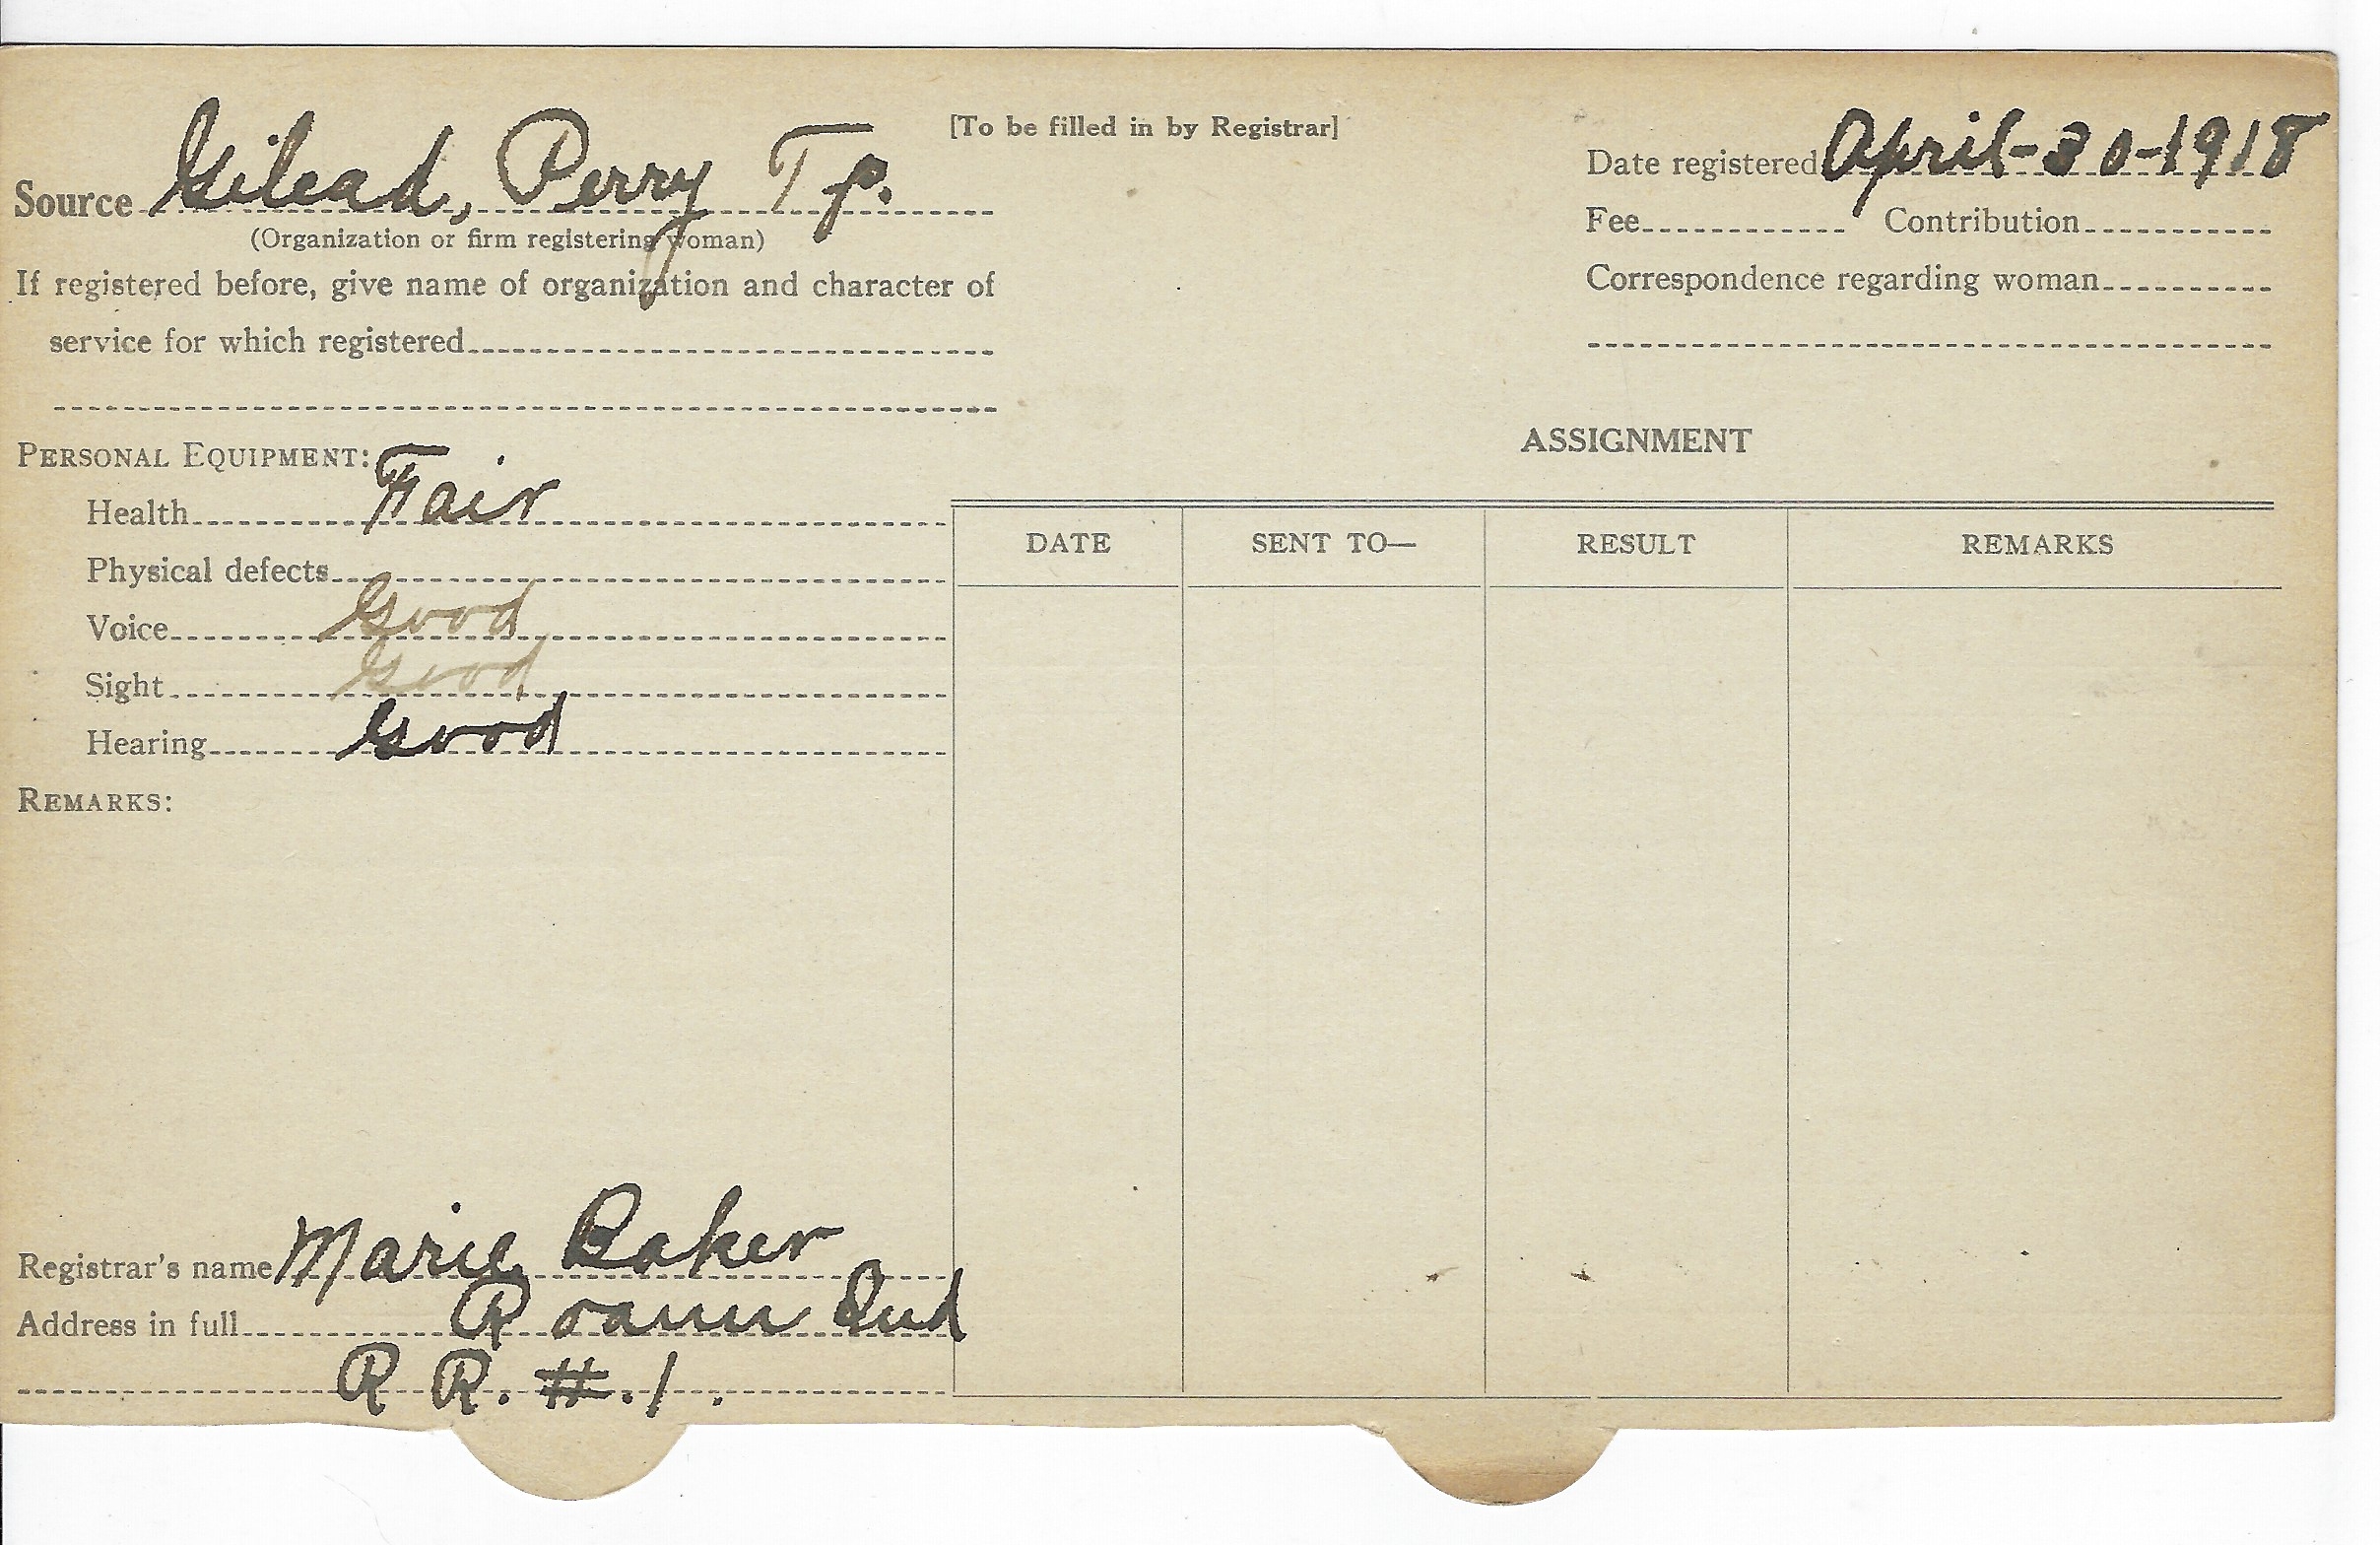 [To be filled in by Registrar]
Source Gilead, Perry Tp.
(Organization or firm registering woman)
If registered before, give name of organization and character of
service for which registered
Date registered April-30-1918
Fee Contribution
Correspondence regarding woman
PERSONAL EQUIPMENT:
Health Fair
Physical defects
Voice Good
Sight Good
Hearing Good
REMARKS:
Registrar's name Marie Baker
Address in full Roann Ind
R R. #.1.
ASSIGNMENT
DATE SENT TO— RESULT REMARKS